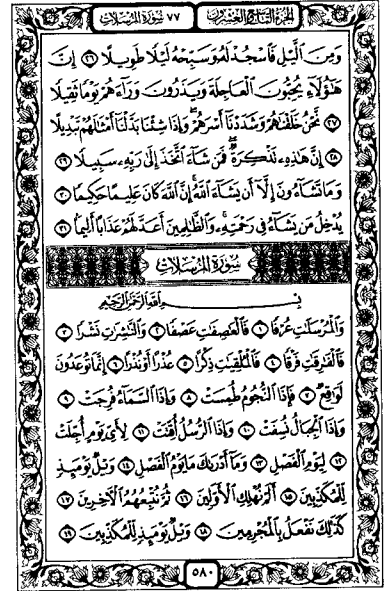 الجزء التاسع والعشرون ٧٧ سورة المرسلات
وَمِنَ الَّيْلِ فَاسْجُدْ لَهُ وَسَبِّحْهُ لَيْلًا طَوِيلًا ٢٦ إِنَّ
هَٰؤُلَاءِ يُحِبُّونَ الْعَاجِلَةَ وَيَذَرُونَ وَرَاءَهُمْ يَوْمًا ثَقِيلًا
٢٧ نَحْنُ خَلَقْنَاهُمْ وَشَدَدْنَا أَسْرَهُمْ وَإِذَا شِئْنَا بَدَّلْنَا أَمْثَالَهُمْ تَبْدِيلًا
٢٨ إِنَّ هَٰذِهِ تَذْكِرَةٌ فَمَن شَاءَ اتَّخَذَ إِلَىٰ رَبِّهِ سَبِيلًا ٢٩
وَمَا تَشَاءُونَ إِلَّا أَن يَشَاءَ اللَّهُ إِنَّ اللَّهَ كَانَ عَلِيمًا حَكِيمًا ٣٠
يُدْخِلُ مَن يَشَاءُ فِي رَحْمَتِهِ وَالظَّالِمِينَ أَعَدَّ لَهُمْ عَذَابًا أَلِيمًا ٣١
سورة المرسلات
بِسْمِ اللَّهِ الرَّحْمَٰنِ الرَّحِيمِ
وَالْمُرْسَلَاتِ عُرْفًا ١ فَالْعَاصِفَاتِ عَصْفًا ٢ وَالنَّاشِرَاتِ نَشْرًا ٣
فَالْفَارِقَاتِ فَرْقًا ٤ فَالْمُلْقِيَاتِ ذِكْرًا ٥ عُذْرًا أَوْ نُذْرًا ٦ إِنَّمَا تُوعَدُونَ
لَوَاقِعٌ ٧ فَإِذَا النُّجُومُ طُمِسَتْ ٨ وَإِذَا السَّمَاءُ فُرِجَتْ ٩
وَإِذَا الْجِبَالُ نُسِفَتْ ١٠ وَإِذَا الرُّسُلُ أُقِّتَتْ ١١ لِأَيِّ يَوْمٍ أُجِّلَتْ
١٢ لِيَوْمِ الْفَصْلِ ١٣ وَمَا أَدْرَاكَ مَا يَوْمُ الْفَصْلِ ١٤ وَيْلٌ يَوْمَئِذٍ
لِّلْمُكَذِّبِينَ ١٥ أَلَمْ نُهْلِكِ الْأَوَّلِينَ ١٦ ثُمَّ نُتْبِعُهُمُ الْآخِرِينَ ١٧
كَذَٰلِكَ نَفْعَلُ بِالْمُجْرِمِينَ ١٨ وَيْلٌ يَوْمَئِذٍ لِّلْمُكَذِّبِينَ ١٩
٥٨٠